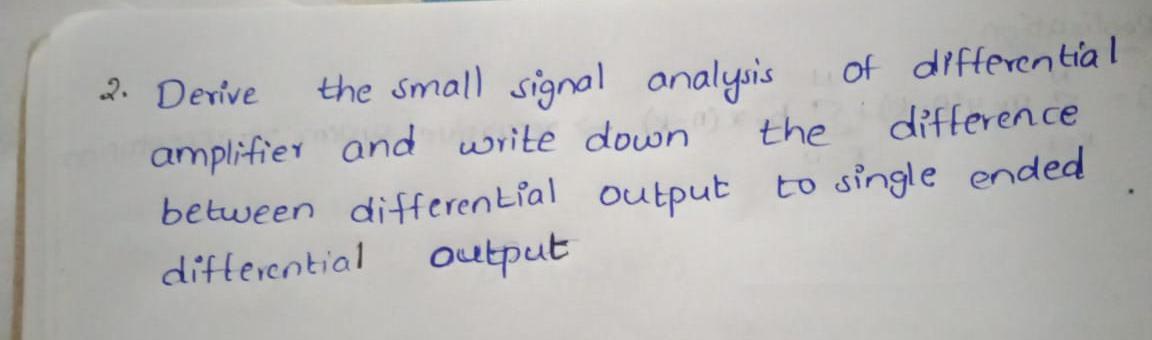 2. Derive the small signal analysis of differential
amplifier and write down the difference
between differential output to single ended
differential output